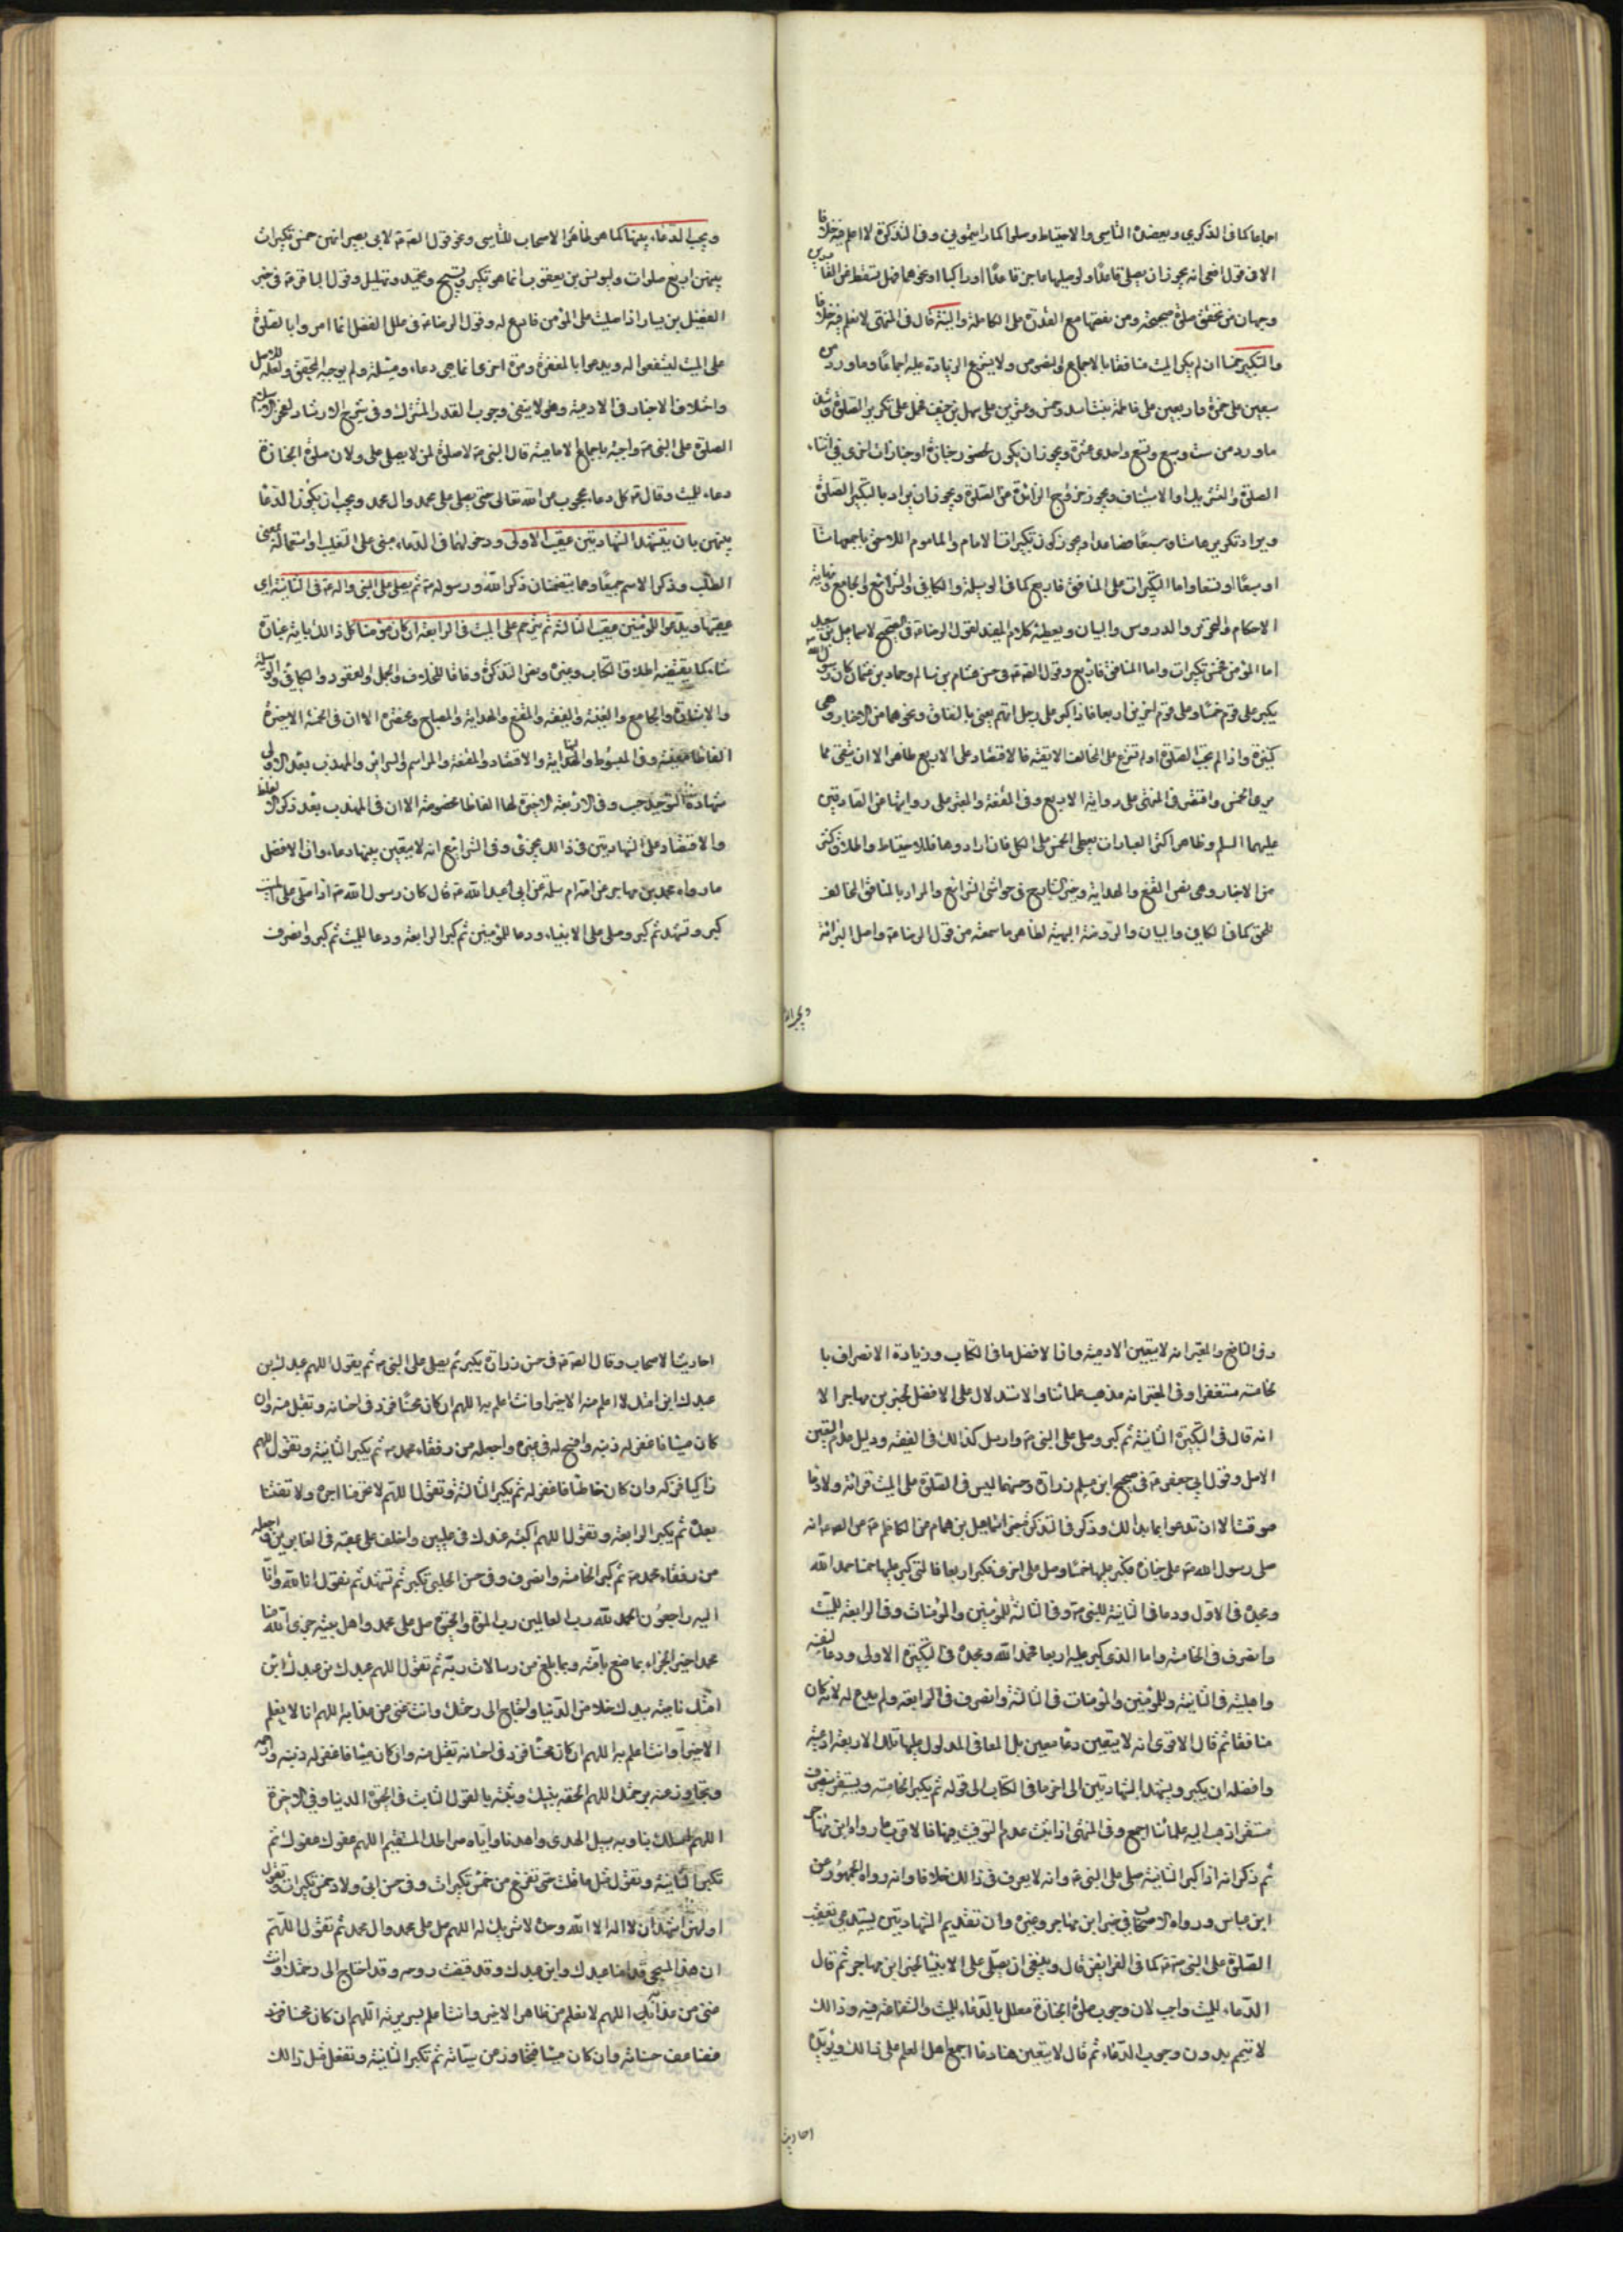 اجماعا كما في الذكرى ويعضده التاسي والاحتياط وصلوا كما رايتموني وفي التذكرة لا اعلم فيه خلافا
الا في قول الشافعي انه يجوز ان يصلي قاعدا ولو صليها عاجز قاعدا او راكبا او نحوهما فهل يسقط عن القادرين
وجهان من تحقق صلوة صحيحة ومن نقصها مع القدرة على الكاملة والنية قال في المنتهى لا نعلم فيه خلافا
والتكبير خمسا ان لم يكن الميت منافقا بالاجماع والنصوص ولا يشرع الزيادة عليه اجماعا وما ورد من
سبعين على حمزة واربعين على فاطمة بنت اسد وخمس وعشرين على سهل بن حنيف فمحمول على تكرير الصلوة ومثله
ما ورد من ست وسبع وتسع واحدى عشرة ويجوز ان يكون لحضور جنازة او جنازات اخرى في اثناء
الصلوة والتشريك او الاستيناف ويجوز خروج الزائدة عن الصلوة ويجوز ان يراد بالتكبير الصلوة
ويراد تكريرها ستا وسبعا فصاعدا ويجوز كون تكبيرات الامام والماموم اللاحق باجمعها ستا
او سبعا او تسعا واما التكبيرات على المنافق فاربع كما في الوسيلة والكافي والشرائع والجامع ونهاية
الاحكام والتحرير والدروس والبيان ويعطيه كلام المفيد لقول الرضا ع في الصحيح لاسماعيل بن سعد
اما المؤمن فخمس تكبيرات واما المنافق فاربع وقول الصادق ع في حسن هشام بن سالم وحماد بن عثمان كان رسول الله ص
يكبر على قوم خمسا وعلى قوم اخرين اربعا فاذا كبر على رجل اربعا اتهم يعني بالنفاق ونحوهما من الاخبار وهي
كثيرة واذا لم يجب الصلوة او لم تشرع على المخالف الا تقية فالاقتصار على الاربع ظاهر الا ان يتقى مما
يرى الخمس واقتصر في المنتهى على رواية الاربع وفي المقنعة والمعتبر على روايتها عن الصادقين
عليهما السلم وظاهر اكثر العبارات يعطي الخمس على الكل فان ارادوها فللاحتياط واطلاق كثير
من الاخبار وهي نص المقنع والهداية وخيرة التابع في حواشي الشرائع والمراد بالمنافق المخالف
للحق كما في الكافي والبيان والروضة البهية لظاهر ما سمعته من قول الرضا ع واصل البرائة
ويجب الد
ويجب الدعاء بينها كما هو ظاهر الاصحاب للتاسي ونحو قول الصادق ع لابي بصير انهن خمس تكبيرات
بينهن اربع صلوات وليونس بن يعقوب انما هو تكبير وتسبيح وتحميد وتهليل وقول الباقر ع في خبر
الفضيل بن يسار اذا صليت على المؤمن فادع له وقول الرضا ع في علل الفضل انما امروا بالصلوة
على الميت ليشفعوا له ويدعوا بالمغفرة ومرة اخرى انما هي دعاء ومسئلة ولم يوجبه المحقق ولعله للاصل
واختلاف الاخبار في الادعية وهو لا ينفي وجوب القدر المشترك وفي شرح الارشاد لفخر الاسلام
الصلوة على النبي ص واجبة باجماع الامامية قال النبي ص لا صلوة لمن لا يصلي علي ولان صلوة الجنازة
دعاء للميت وقال ص كل دعاء محجوب عن الله تعالى حتى يصلى على محمد وال محمد ويجب ان يكون الدعا
بينهن بان يتشهد الشهادتين عقيب الاولى ودخولهما في الدعاء مبني على التغليب او اشتماله بمعنى
الطلب وذكر الاسم جميعا وهما يتضمنان ذكر الله ورسوله ص ثم يصلي على النبي واله ع في الثانية اي
عقيبها ويدعو للمؤمنين عقيب الثالثة ثم يترحم على الميت في الرابعة ان كان مؤمنا كل ذلك باية عبارة
شاء كما يقتضيه اطلاق الكتاب وغيره ونص التذكرة وفاقا للخلاف والجمل والعقود والكافي والوسيلة
والاشارة والجامع والغنية والفقيه والمقنع والهداية والمصباح ومختصره الا ان في الخمسة الاخيرة
الفاظا معينة وفي المبسوط والنهاية والاقتصاد والمقنعة والمراسم والسرائر والمهذب بعد الاولى
شهادة التوحيد حسب وفي الاربعة الاخيرة لها الفاظا مخصوصة الا ان في المهذب بعد ذكر الالفاظ
والاقتصار على الشهادتين في ذلك مجزئ وفي الشرائع انه لا يتعين بينها دعاء وان الافضل
ما رواه محمد بن مهاجر عن امه ام سلمة عن ابي عبد الله ع قال كان رسول الله ص اذا صلى على الميت
كبر وتشهد ثم كبر وصلى على الانبياء ودعا للمؤمنين ثم كبر الرابعة ودعا للميت ثم كبر وانصرف
وفي النافع والمعتبر انه لا يتعين الادعية وان الافضل ما في الكتاب وزيادة الانصراف با
لخامسة مستغفرا وفي المعتبر انه مذهب علمائنا والاستدلال على الافضل بخبر بن مهاجر الا
انه قال في التكبيرة الثانية ثم كبر وصلى على النبي ص وارسل كذلك في الفقيه ودليل عدم التعين
الاصل وقول ابي جعفر ع في صحيح ابن مسلم وزرارة وحسنهما ليس في الصلوة على الميت قرائة ولا دعا
موقت الا ان تدعو بما بدا لك وذكر في التذكرة خبر اسماعيل بن همام عن الكاظم ع عن الصادق ع انه
صلى رسول الله ص على جنازة فكبر عليها خمسا وصلى على اخرى فكبر اربعا فالتي كبر عليها خمسا حمد الله
ومجده في الاولى ودعا في الثانية للنبي ص وفي الثالثة للمؤمنين والمؤمنات وفي الرابعة للميت
وانصرف في الخامسة واما الذي كبر عليه اربعا فحمد الله ومجده في التكبيرة الاولى ودعا لنفسه
واهل بيته في الثانية وللمؤمنين والمؤمنات في الثالثة وانصرف في الرابعة ولم يدع له لانه كان
منافقا ثم قال الاقوى انه لا يتعين دعا معين بل المعاني المدلول عليها تلك الاربعة ادعية
وافضله ان يكبر ويشهد الشهادتين الى اخر ما في الكتاب الى قوله ثم يكبر الخامسة وينصرف
مستغفرا ذهب اليه علمائنا اجمع وفي المنتهى اذا ثبت عدم التوقيت فيها فالاقرب ما رواه ابن مهاجر
ثم ذكر انه اذا كبر الثانية صلى على النبي ص وانه لا يعرف في ذلك خلافا وانه رواه الجمهور عن
ابن عباس ورواه الاصحاب في خبر ابن مهاجر وغيره وان تقديم الشهادتين يستدعي تعقيب
الصلوة على النبي ص كما في الفرايض قال وينبغي ان يصلى على الانبياء لخبر ابن مهاجر ثم قال
الدعاء للميت واجب لان وجوب صلوة الجنازة معلل بالدعاء للميت والشفاعة فيه وذلك
لا يتم بدون وجوب الدعاء ثم قال لا يتعين هنا دعا اجمع اهل العلم على ذلك ويؤيده
احاديث
احاديث الاصحاب وقال الصادق ع في حسن زرارة يكبر ثم يصلي على النبي ص ثم يقول اللهم عبدك بن
عبدك ابن امتك لا اعلم منه الا خيرا وانت اعلم به اللهم ان كان محسنا فزد في احسانه وتقبل منه وان
كان مسيئا فاغفر له ذنبه وافسح له في قبره واجعله من رفقاء محمد ص ثم يكبر الثانية وتقول اللهم ان كان
زاكيا فزكه وان كان خاطئا فاغفر له ثم يكبر الثالثة وتقول اللهم لا تحرمنا اجره ولا تفتنا
بعده ثم يكبر الرابعة وتقول اللهم اكتبه عندك في عليين واخلف على عقبه في الغابرين واجعله
من رفقاء محمد ص ثم كبر الخامسة وانصرف وفي حسن الحلبي تكبر ثم تشهد ثم تقول انا لله وانا
اليه راجعون الحمد لله رب العالمين رب الموت والحيوة صل على محمد واهل بيته جزى الله عنا
محمدا خير الجزاء بما صنع بامته وبما بلغ من رسالات ربه ثم تقول اللهم عبدك بن عبدك ابن
امتك ناصيته بيدك خلا من الدنيا واحتاج الى رحمتك وانت غني عن عذابه اللهم انا لا نعلم
الا خيرا وانت اعلم به اللهم ان كان محسنا فزد في احسانه وتقبل منه وان كان مسيئا فاغفر له ذنبه وارحمه
وتجاوز عنه برحمتك اللهم الحقه بنبيك وثبته بالقول الثابت في الحيوة الدنيا وفي الاخرة
اللهم اسلك بنا وبه سبيل الهدى واهدنا واياه صراطك المستقيم اللهم عفوك عفوك ثم
تكبر الثانية وتقول مثل ما قلت حتى تفرغ من خمس تكبيرات وفي حسن ابي ولاد خمس تكبيرات تقول
اولهن اشهد ان لا اله الا الله وحده لا شريك له اللهم صل على محمد وال محمد ثم تقول اللهم
ان هذا المسجى قدامنا عبدك وابن عبدك وقد قبضت روحه وقد احتاج الى رحمتك وانت
غني عن عذابه اللهم لا نعلم من ظاهره الا خيرا وانت اعلم بسريرته اللهم ان كان محسنا فزد
فضاعف حسناته وان كان مسيئا فتجاوز عن سيئاته ثم تكبر الثانية وتفعل مثل ذلك